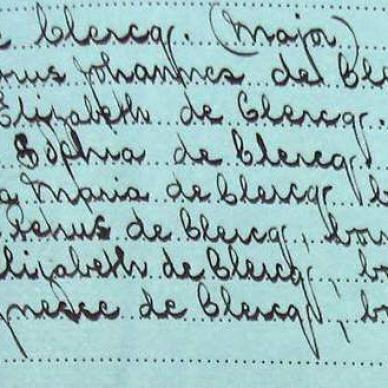 Clercq. (Major)
Johannes de Cle
Elizabeth de Clercq
Sophia de Clercq
a Maria de Clercq
Petrus de Clercq, bou
Elizabeth de Clercq, bo
gnesce de Clercq, bo